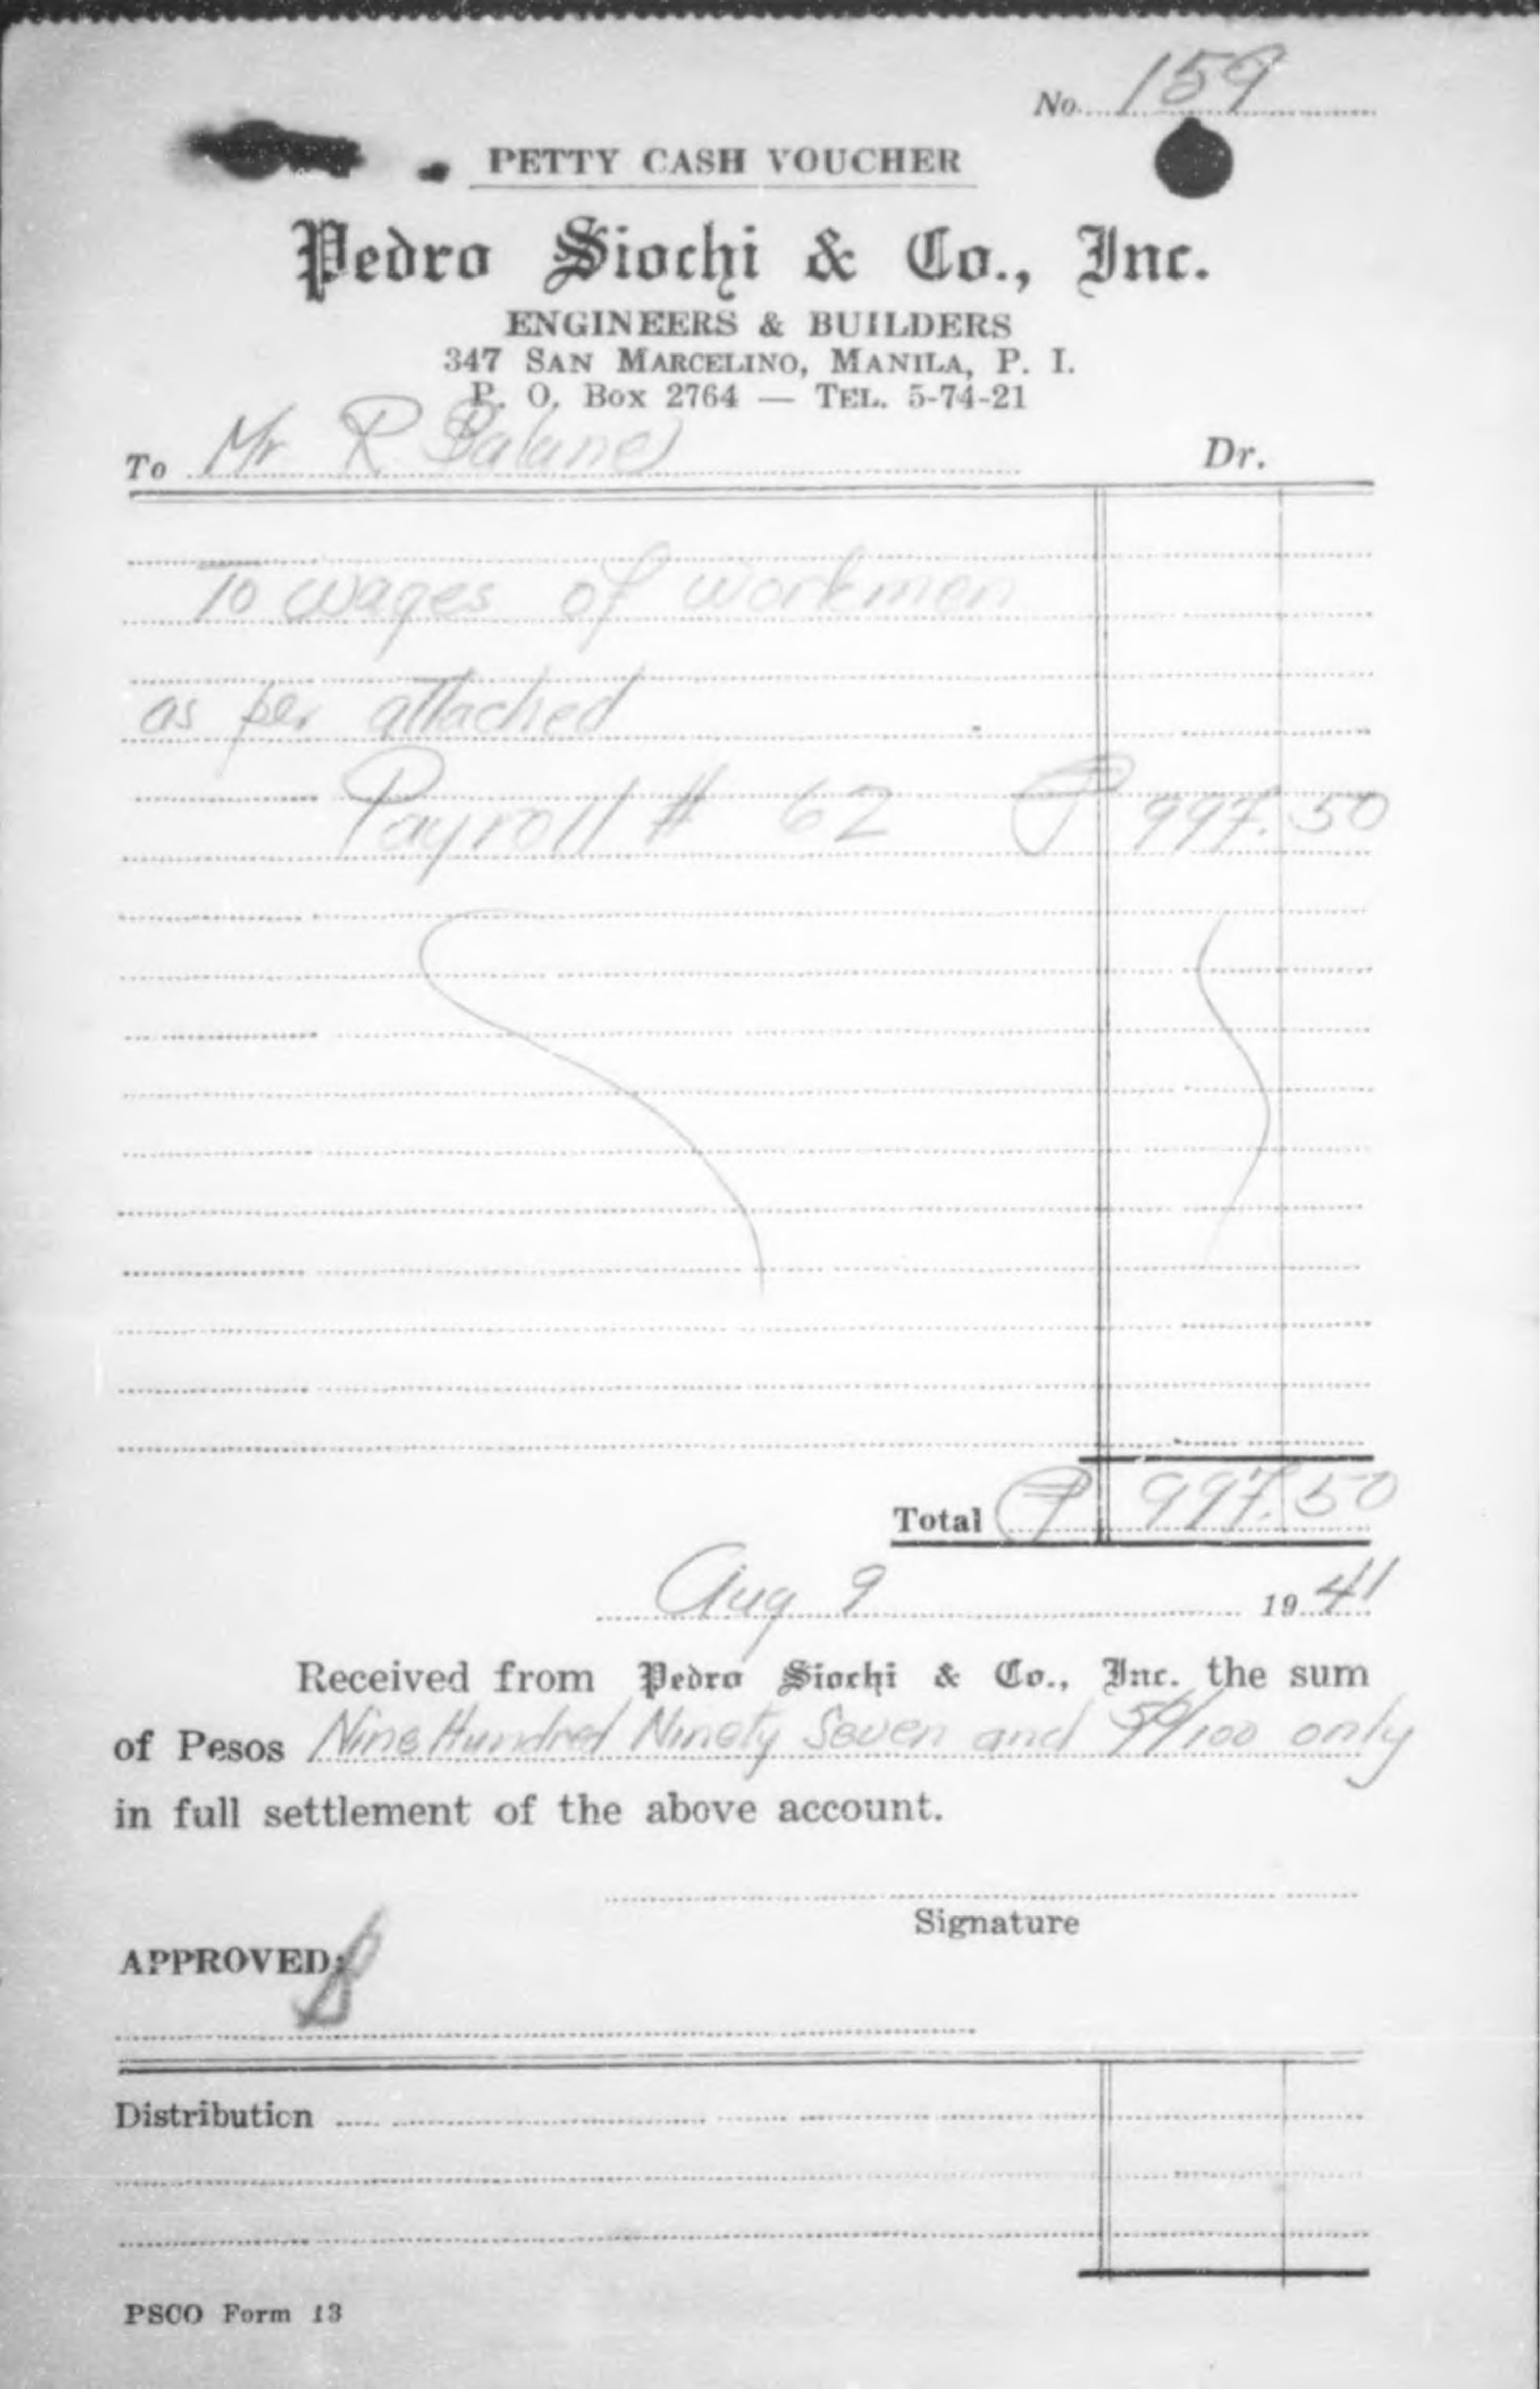 No. 159
PETTY CASH VOUCHER
Pedro Siochi & Co., Inc.
ENGINEERS & BUILDERS
347 SAN MARCELINO, MANILA, P. I.
P. O. Box 2764 — TEL. 5-74-21
To Mr R Dr.
To wages of workmen
as per attached
Payroll # 62 ₱ 997.50
Total ₱ 997.50
Aug 9 1941
Received from Pedro Siochi & Co., Inc. the sum
of Pesos Nine Hundred Ninety Seven and 50/100 only
in full settlement of the above account.
Signature
APPROVED:
Distribution
PSCO Form 13